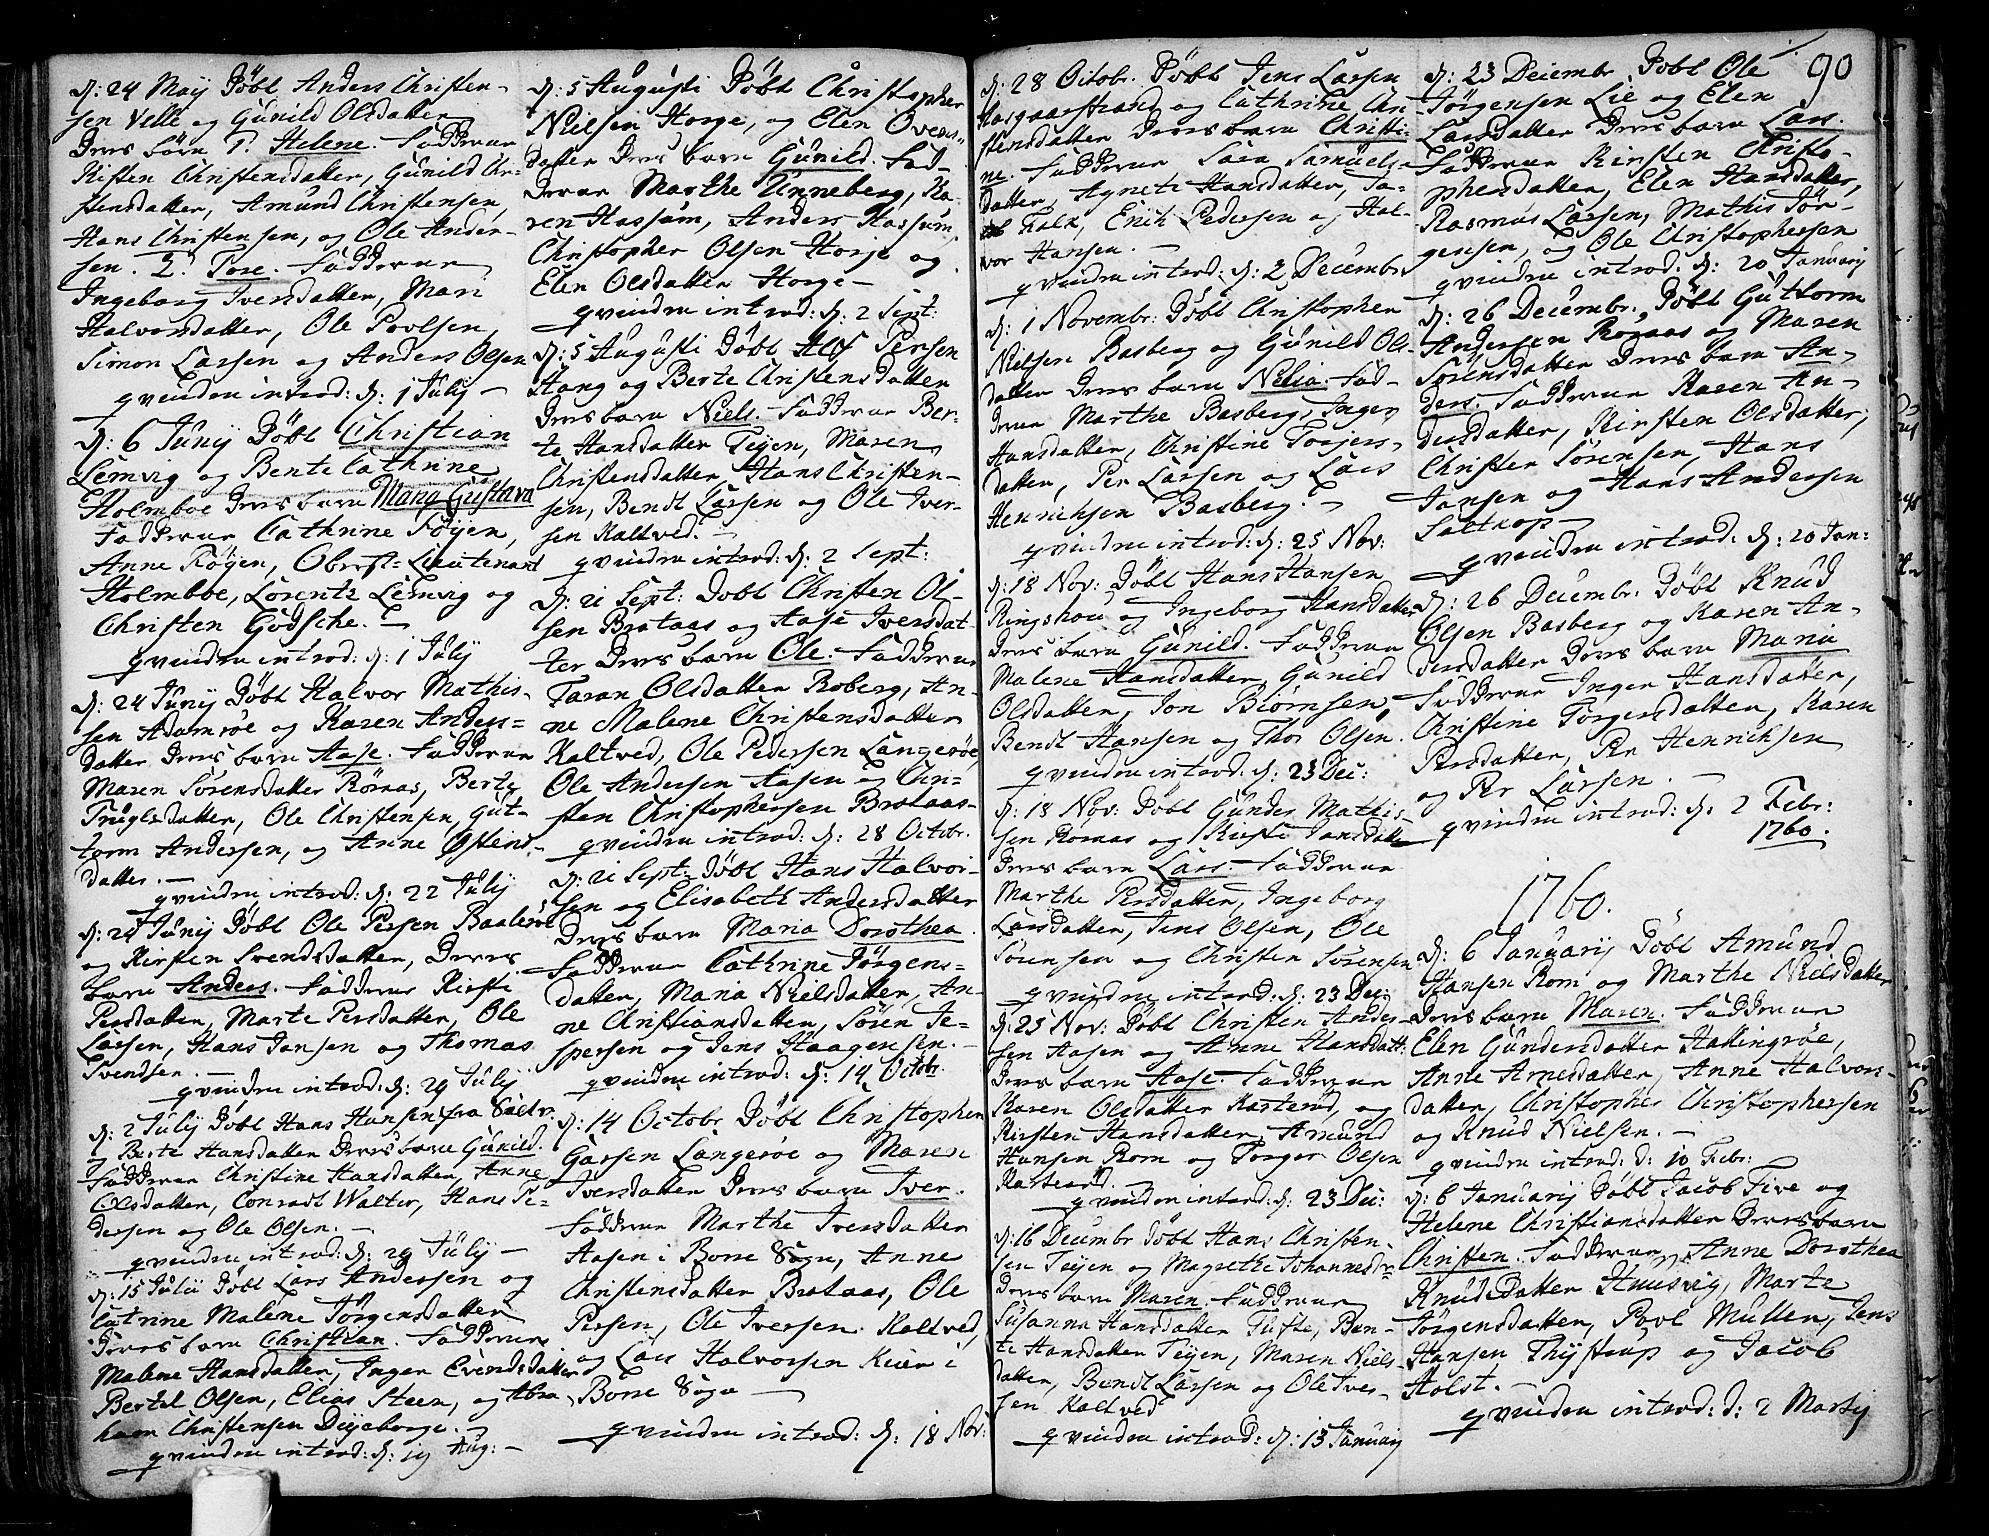 d: 24 Maij Döbt Anders Christen-
sen Velle og Gunild Olsdatter
Deres börn 1. Helene. Fadderne
Kisten Christensdatter, Gunild Chri-
stensdatter, Amund Christensen,
Hans Christensen, og Ole Ander-
sen. 2. Tore. Fadderne
Ingeborg Iversdatter, Mari
Halvorsdatter, Ole Povlsen,
Simon Larsen og Anders Olsen
qvinden introd: d: 1 Julij
d: 6 Junij Döbt Christian
Lemvig og Bente Cathrine
Holmboe Deres barn Maria Gustava
Fadderne Cathrine Föyen,
Anne Röyen, Oberst-Lieutenant
Holmboe, Lorentz Lemvig og
Christen Godsche.
qvinden introd: d: 1 Julij
d: 24 Junij Döbt Halvor Mathis-
sen Adamröe og Karen Anders-
datter Deres barn Aase. Fadderne
Maren Sörensdatter Römas, Berte
Truglsdatter, Ole Christensen, Gut-
torm Andersen, og Anne Östens-
datter.
qvinden introd: d: 22 Julij
d: 24 Junij Döbt Ole Persen Baaleröe
og Kirsten Svendsdatter, Deres
barn Anders. Fadderne Kirsti
Persdatter, Marte Persdatter, Ole
Larsen, Hans Jansen og Thomas
Svendsen.
qvinden introd: d: 29 Julij
d: 2 Julij Döbt Hans Hansen fra
og Berte Hansdatter Deres barn Gunild.
Fadderne Christine Hansdatter, Anne
Olsdatter, Conradt Walter, Hans Pe-
dersen og Ole Olsen.
qvinden introd: d: 29 Julij
d: 15 Julij Döbt Lars Andersen og
Catrine Malene Jörgensdatter
Deres barn Christian. Fadderne
Malene Hansdatter, Inger Evendsdatter
Bertel Olsen, Elias Steen, og Abra
ham Christensen
qvinden introd: d: 19 Aug:
d: 5 Augusti Döbt Christopher
Nielsen Horge, og Elen Ovens-
datter Deres barn Gunild. Fad-
derne Marthe Unneberg, Ka-
ren Hassum, Anders Hassum,
Christopher Olsen Horge og
Elen Olsdatter Horge
qvinden introd: d: 2 Sept:
d: 5 Augusti Döbt Alf Persen
Haug og Berte Christensdatter
Deres barn Niels. Fadderne Ber-
te Hansdatter Teijen, Maren
Christensdatter Hans Christen-
sen, Bendt Larsen og Ole Iver-
sen Kaltved.
qvinden introd: d: 2 Sept:
d: 21 Sept: Döbt Christen Ol-
sen Brataas og Aase Iversdat-
ter Deres barn Ole. Fadderne
Taran Olsdatter Roberg, An-
ne Malene Christensdatter
Kaltved, Ole Pedersen Langeröe,
Ole Andersen Aasen og Chri-
sten Christophersen Brataas
qvinden introd: d: 28 Octobr:
d: 21 Sept: Döbt Hans Halvor-
sen og Elisabeth Andersdatter
Deres barn Maria Dorothea.
Fadderne Cathrine Jörgens-
datter, Maria Nielsdatter, An-
ne Christiansdatter, Sören Je-
spersen og Jens Haagensen.
qvinden introd: d: 14 Octobr:
d: 14 Octobr Döbt Christopher
Larsen Langeröe og Maren
Iversdatter Deres barn Iver.
Fadderne Marthe Iversdatter
Aasen i Borre Sogn, Anne
Christensdatter Brataas, Ole
Persen, Ole Iversen Kaltved,
og Lars Halvorsen Kiær i
Borre Sogn
qvinden introd: d: 18 Nov:
90
d: 28 Octobr: Döbt Jens Larsen
Aasgaarstrand og Cathrine Chri-
stensdatter Deres barn Christi-
ne. Fadderne Sara Samuels-
datter, Agnete Hansdatter, Ja-
cob Falk, Erich Pedersen og Hal-
vor Hansen.
qvinden introd: d: 2 Decembr:
d: 1 Novembr: Döbt Christopher
Nielsen Basberg og Gunild Ols-
datter Deres barn Nelia. Fad-
derne Marthe Basberg, Inger
Hansdatter, Christine Torgers-
datter, Per Larsen og Lars
Henrichsen Basberg.
qvinden introd: d: 25 Nov:
d: 18 Nov: Döbt Hans Hansen
Ringshou og Ingeborg Hansdatter
Deres barn Gunild. Fadderne
Malene Hansdatter, Gunild
Olsdatter, Jon Biörnsen,
Bendt Hansen og Thor Olsen.
qvinden introd: d: 23 Dec:
d: 18 Nov: Döbt Gunder Mathis-
sen Romas og Kirsti Jansdatter
Deres barn Lars Fadderne
Marthe Persdatter, Ingeborg
Larsdatter, Jens Olsen, Ole
Sörensen og Christen Sörensen
qvinden introd: d: 23 Dec:
d: 25 Nov: Döbt Christen Ander-
sen Aasen og Anne Hansdatt:
Deres barn Aase. Fadderne
Karen Olsdatter Rasterud, og
Kirsten Hansdatter, Amund
Hansen Rom og Torger Olsen
Rasterud.
qvinden introd: d: 23 Dec:
d: 16 Decembr Döbt Hans Christen-
sen Teijen og Magrethe Johannesdr
Deres barn Maren. Fadderne
Susanna Hansdatter Tufte, Ben-
te Hansdatter Teijen, Maren Niels-
datter, Bendt Larsen og Ole Iver-
sen Kaltved
qvinden introd: d: 13 Januarij
d: 23 Decembr Döbt Ole
Jörgensen Lie og Elen
Larsdatter Deres barn Lars.
Fadderne Kirsten Christo-
phersdatter, Elen Hansdatter,
Rasmus Larsen, Mathis Jör-
gensen, og Ole Christophersen
qvinden introd: d: 20 Januarij
d: 26 Decembr: Döbt Guttorm
Andersen Romaas og Maren
Sörensdatter Deres barn An-
ders. Fadderne Karen An-
dersdatter, Kirsten Olsdatter,
Christen Sörensen, Hans
Jansen og Hans Andersen
Saltkop
qvinden introd: d: 20 Jan:
d: 26 Decembr: Döbt Knud
Olsen Basberg og Karen An-
dersdatter Deres barn Maria
Fadderne Inger Hansdatter,
Christine Torgersdatter, Karen
Persdatter, Per Henrichsen
og Per Larsen.
qvinden introd: d: 2 Febr:
1760.
1760.
d: 6 Januarij Döbt Amund
Hansen Rom og Marthe Nielsdatter
Deres barn Maren. Fadderne
Elen Gundersdatter Hakkingröe,
Anne Arnesdatter, Anne Halvors-
datter, Christopher Christophersen
og Knud Nielsen.
qvinden introd: d: 10 Febr:
d: 6 Januarij Döbt Jacob Five og
Helene Christiansdatter Deres barn
Christen. Fadderne Anne Dorothea
Knudsdatter Huusvig, Marte
Jörgensdatter, Povl Muller, Jens
Hansen Thystrup og Jacob
Holst.
qvinden introd: d: 2 Martij